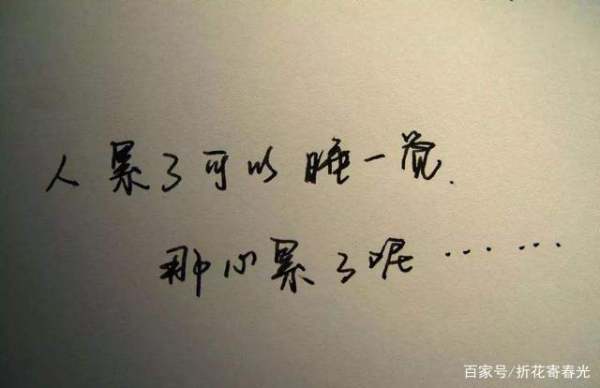 人累了可以睡一觉.
那心累了呢……
百家号/折花寄春光